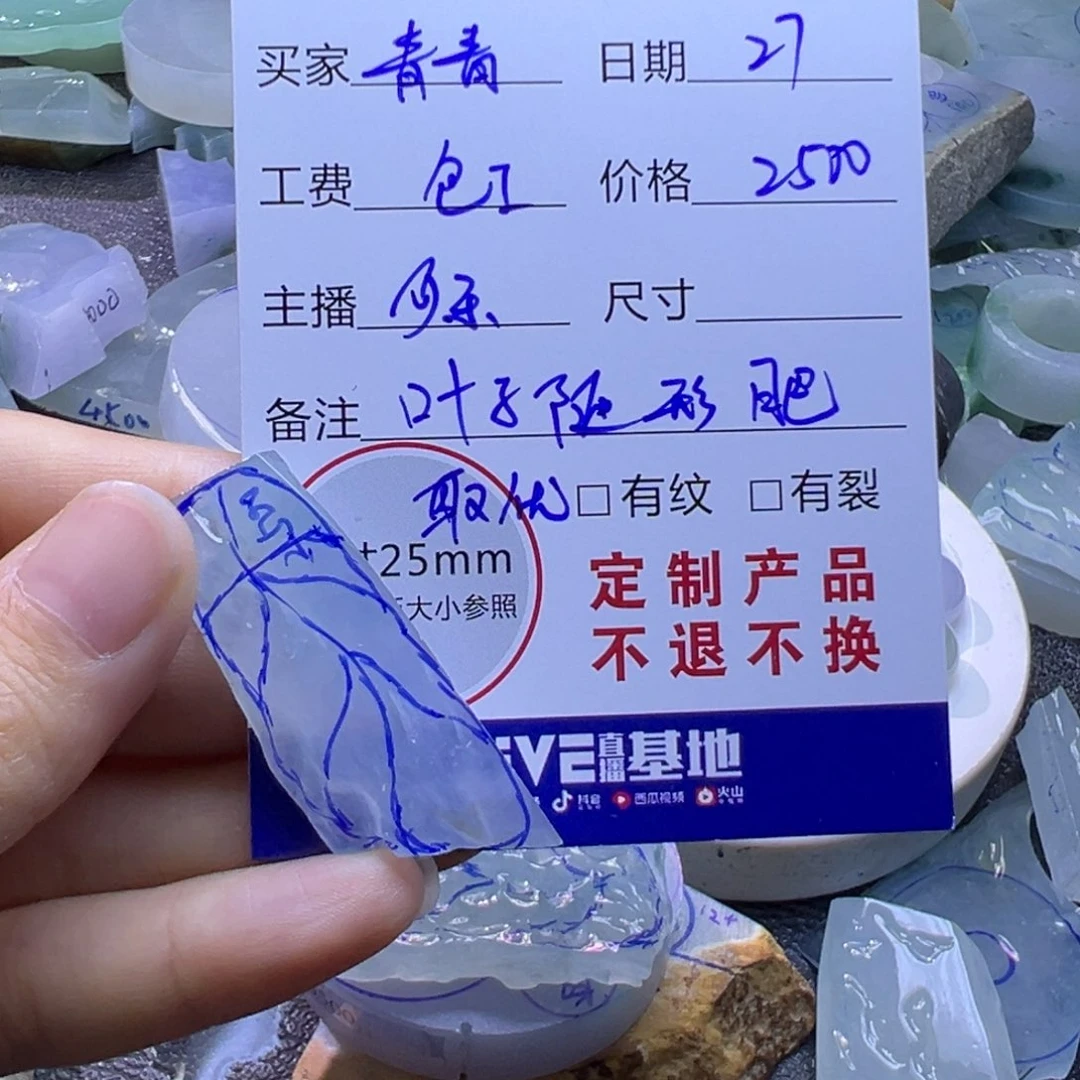 买家 青青 日期 27
工费 包工 价格 2500
主播 尺寸
备注 叶子随形 肥
取优 □有纹 □有裂
25mm
大小参照
定制产品
不退不换
直播基地
抖音 西瓜视频 火山
000
4500